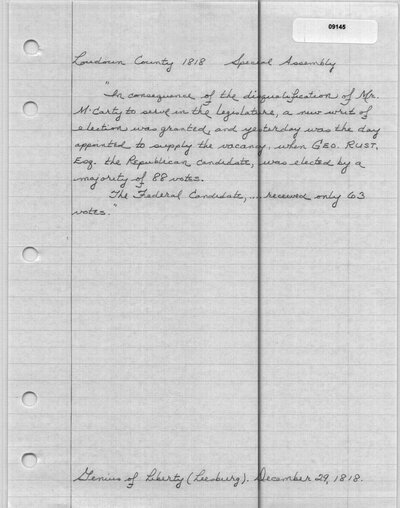 09145
Loudoun County 1818 Special Assembly
"In consequence of the disqualification of Mr.
McCarty to serve in the legislature, a new writ of
election was granted, and yesterday was the day
appointed to supply the vacancy, when GEO. RUST.
Esq. the Republican candidate, was elected by a
majority of 88 votes.
The Federal Candidate, .... received only 63
votes."
Genius of Liberty (Leesburg). December 29, 1818.